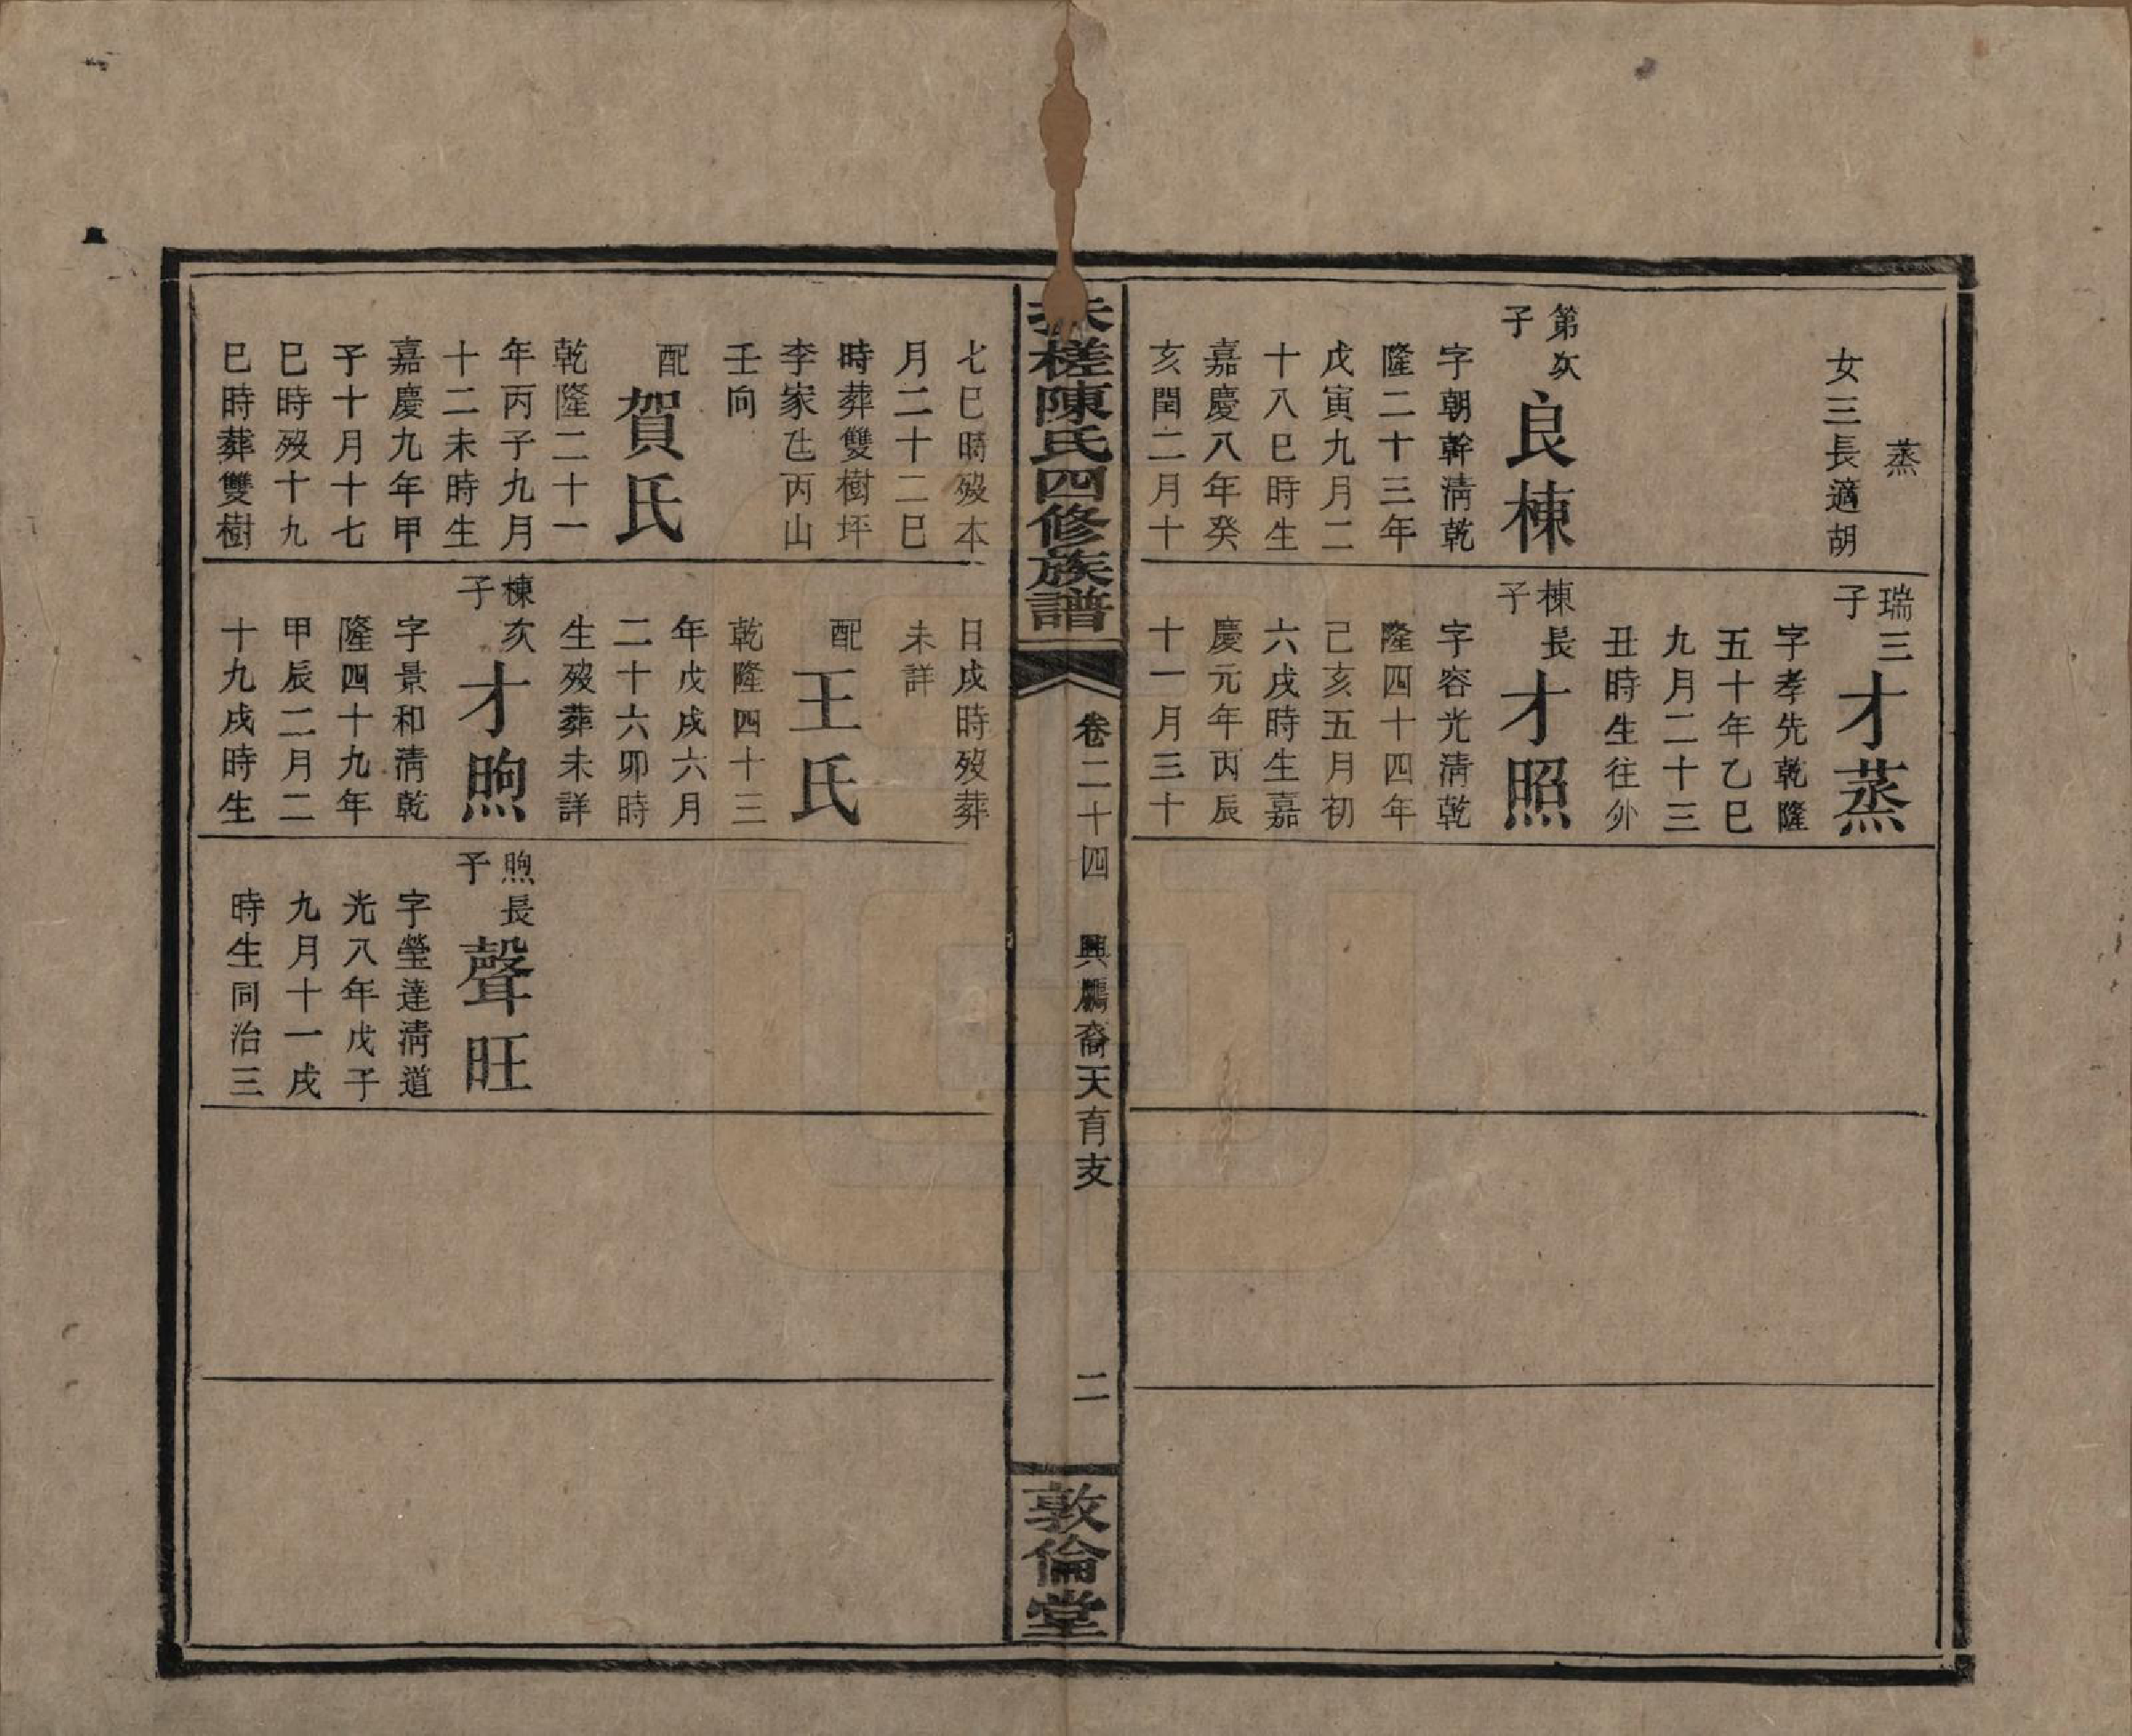 蒸
女三長適胡
第次子
良棟
字朝幹淸乾
隆二十三年
戊寅九月二
十八巳時生
嘉慶八年癸
亥閏二月十
瑞三子
才蒸
字孝先乾隆
五十年乙巳
九月二十三
丑時生往外
棟長子
才照
字容光淸乾
隆四十四年
己亥五月初
六戌時生嘉
慶元年丙辰
十一月三十
槎陳氏四修族譜
卷二十四
興鵬裔天育支
二
敦倫堂
七巳時歿本
月二十二巳
時葬雙樹坪
李家屯丙山
壬向
配
賀氏
乾隆二十一
年丙子九月
十二未時生
嘉慶九年甲
子十月十七
巳時歿十九
巳時葬雙樹
日戌時歿葬
未詳
配
王氏
乾隆四十三
年戊戌六月
二十六卯時
生歿葬未詳
棟次子
才煦
字景和淸乾
隆四十九年
甲辰二月二
十九戌時生
煦長子
聲旺
字瑩達淸道
光八年戊子
九月十一戌
時生同治三